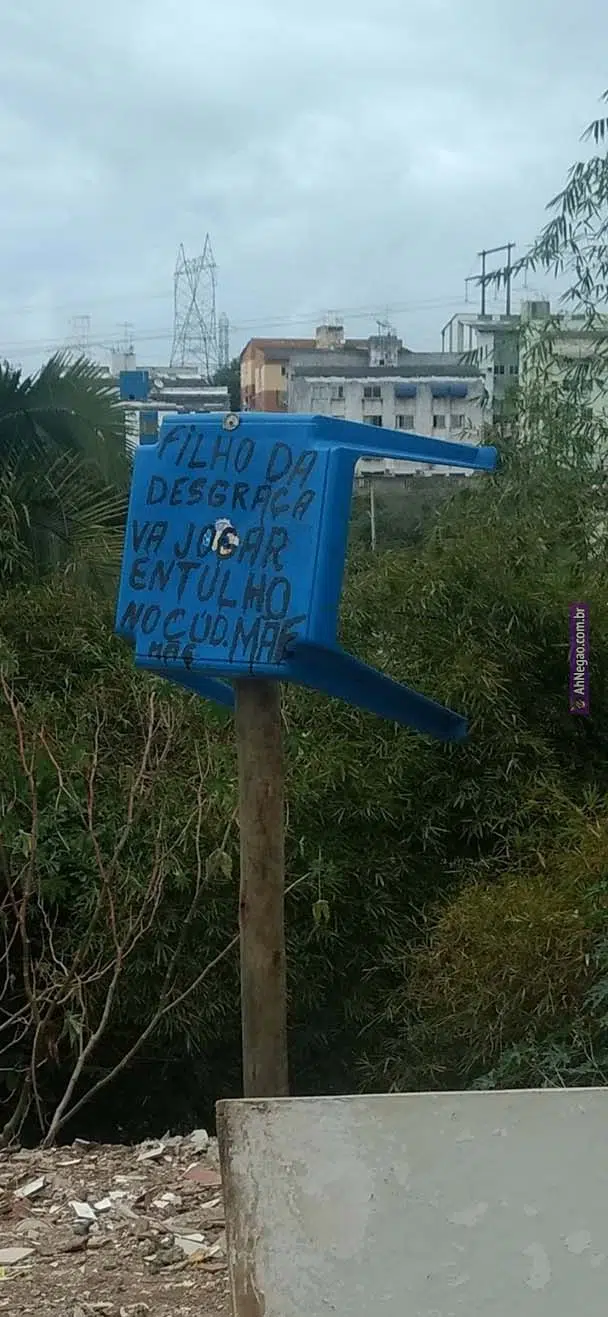 FILHO DA
DESGRAÇA
VA JOGAR
ENTULHO
NO CÚ D. MÃE
MÃE
AhNegao.com.br